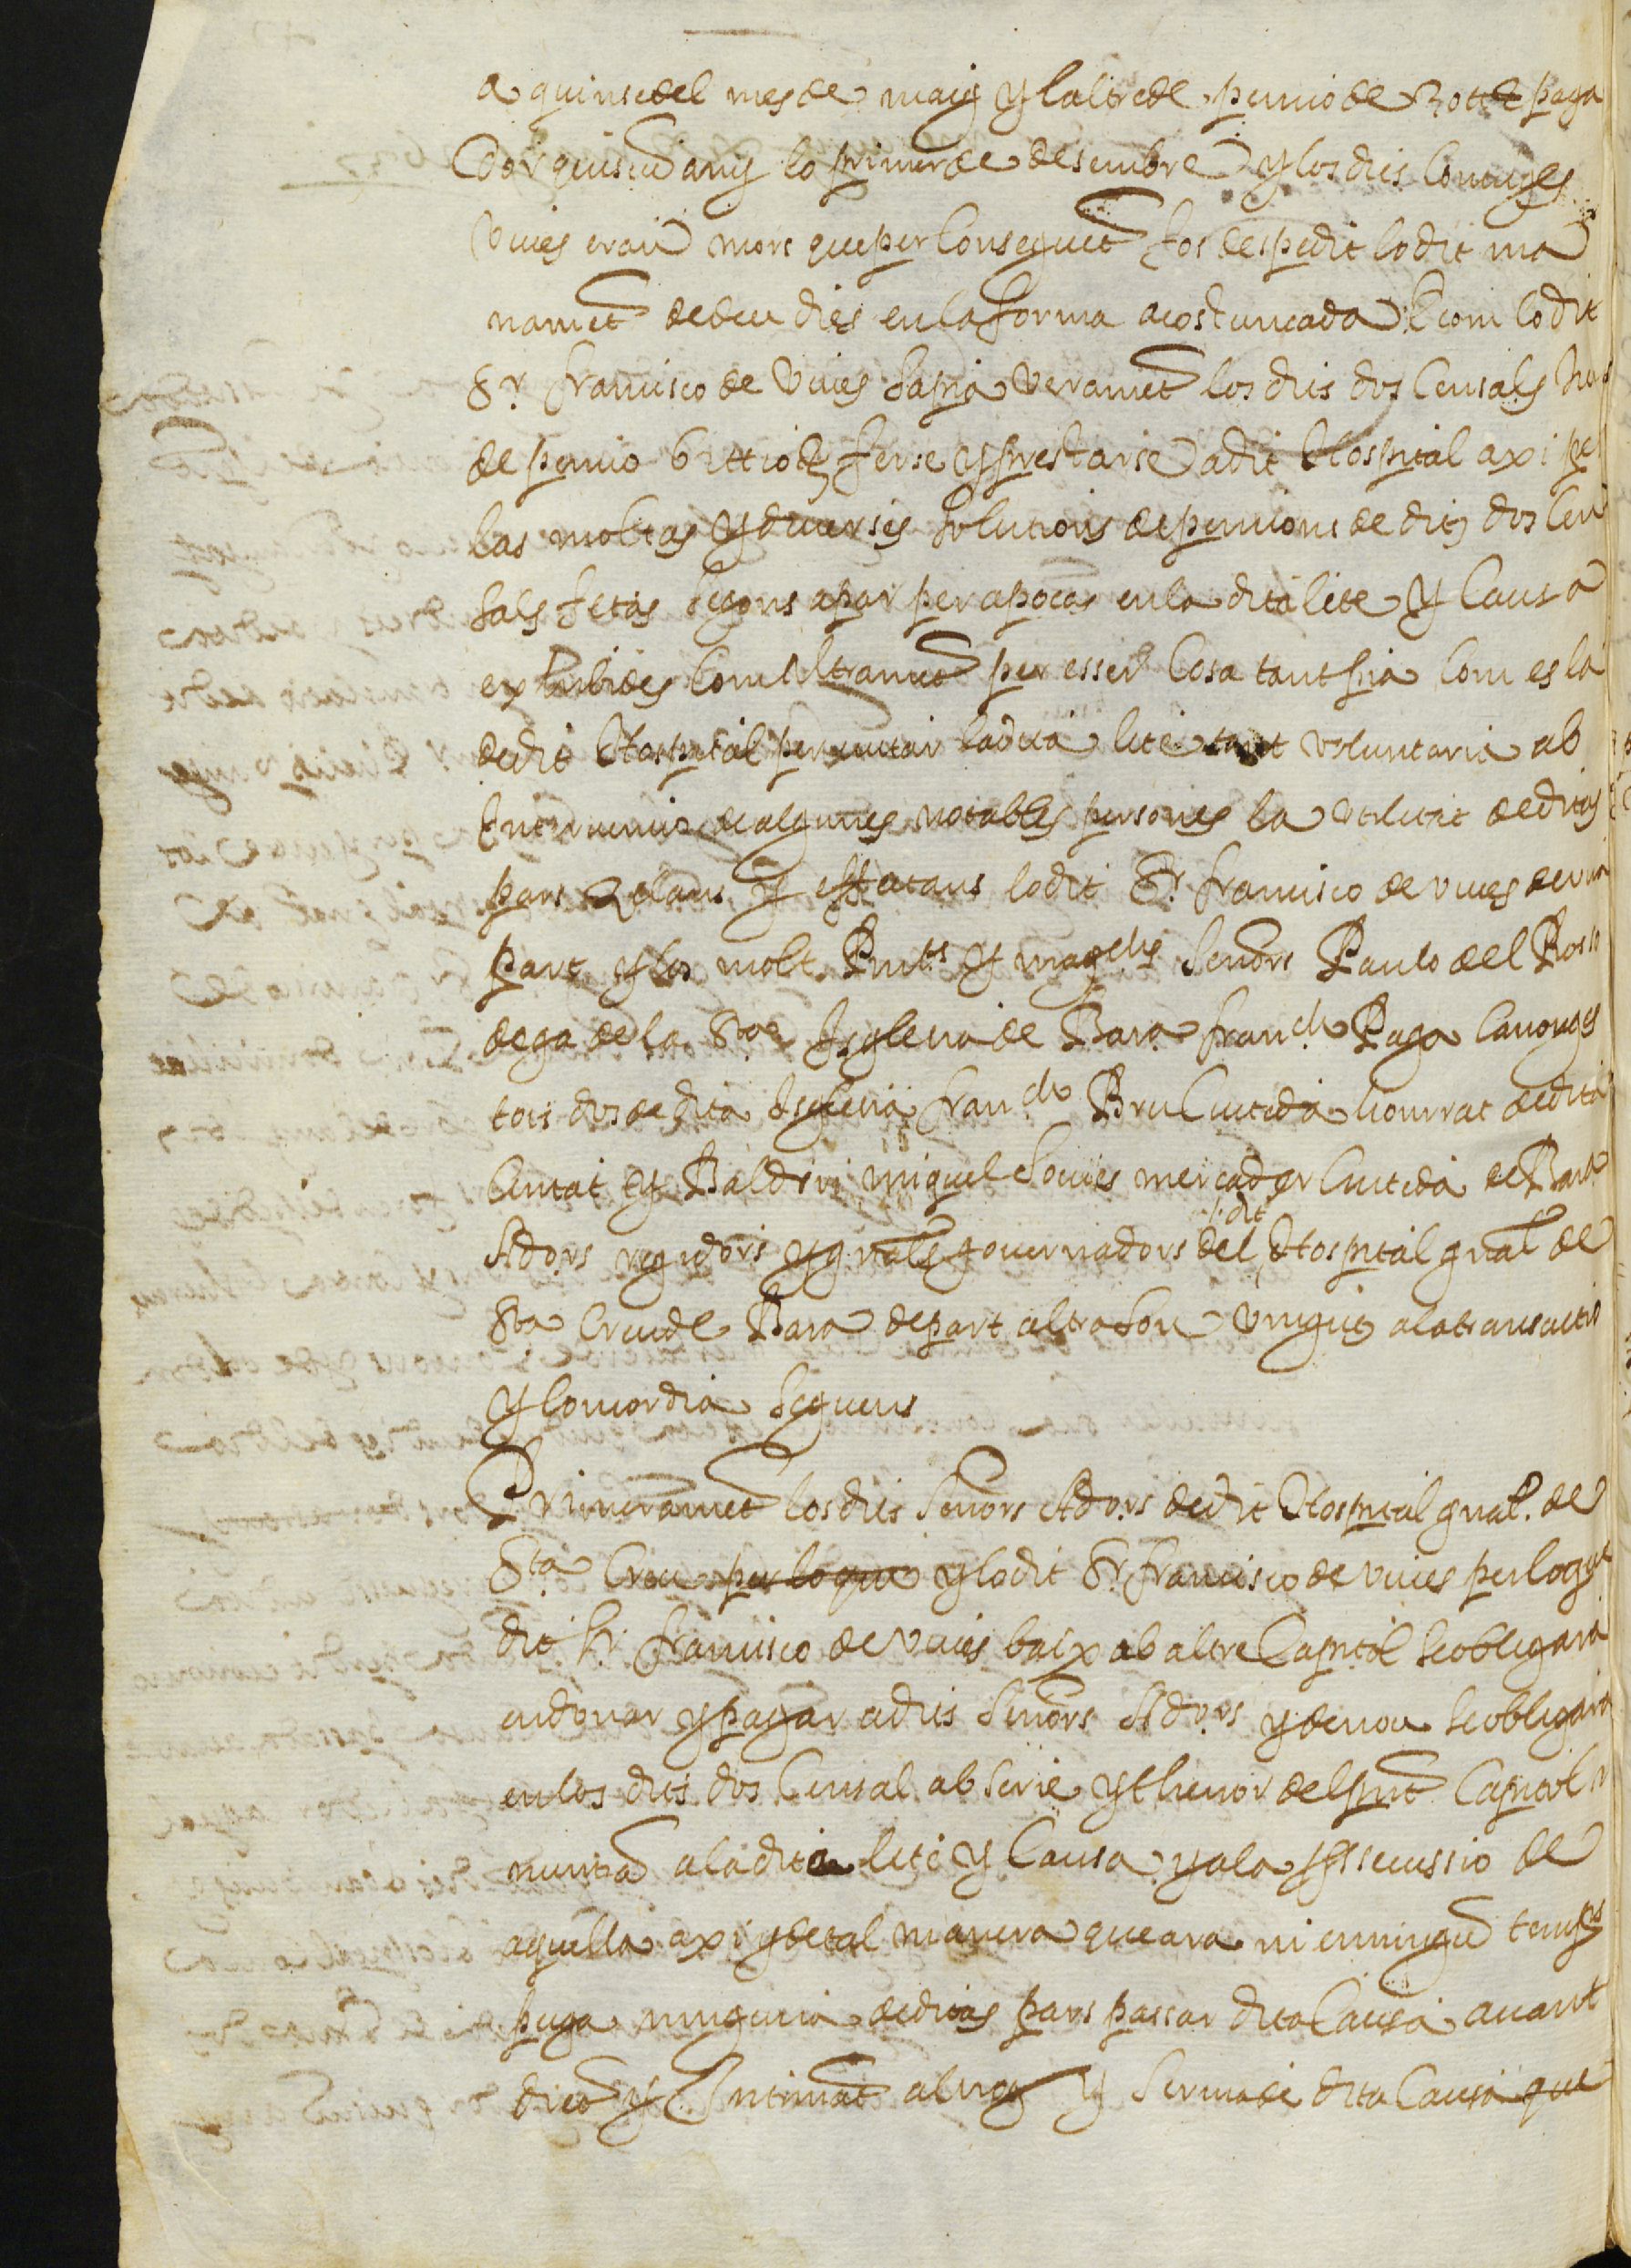 a quinse del mes de maig y laltre de pencio de
dor quiscu any lo primer de desembre y los dits coniuges
viues eran mors que per conseguet fos despedit lo dit ma
namet de deu dies en la forma acostumada E com lo dit
Sr. francisco de viues sapia veramet los dits dos censals
de pencio ferse y prestarse a dit Hospital axi per
las moltas y diuerses solutions de pencions de dits dos cen
sals fetas segons apar per apocas en la dita lite y causa
exhibides com altramet per esser cosa tant pia com es la
de dit Hospital per euitar la dita lite tant voluntaria ab
interuencio de algunes notables persones la vtilitat de ditas
pars zelans y effectans lo dit Sr. francisco de viues de vna
part y los molt Rnts y magchs Señors Paulo del Rosso
dega de la Sta Iglesia de Bara franch Paga canonges
tots dos de dita Iglesia franch Bru Ciutada honrrat de dita
Ciutat y Baldiri miquel mercader Ciutada de Bara
Adors regidors y gnals gouernadors del dit Hospital gnal de
Sta Creu de Bara de part altra son vinguts a la transactio
y concordia seguens
Primeramet los dits Señors Adors de dit Hospital gnal. de
Sta Creu per lo que y lo dit Sr. francisco de viues per lo que
dit Sr. francisco de viues baix ab altre Capitol se obligara
en donar y pagar a dits Señors Adors y de nou se obligara
en los dits dos Censal ab serie y thenor del pnt Capitol
nuntia a la dita lite y Causa y a la prossecussio de
aquella axi y de tal manera que ara ni en ningu temps
puga ninguna de ditas pars passar dita Causa auant
dient y intimant al y scriua de dita Causa que